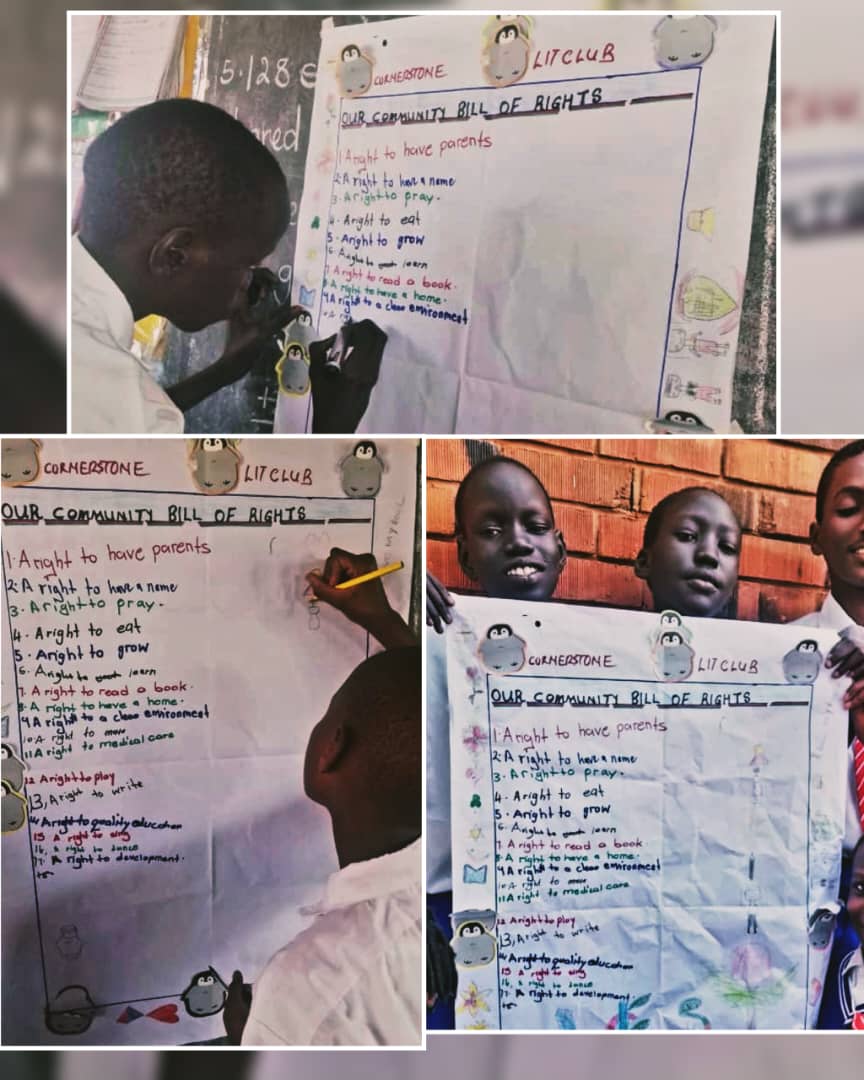 15.128 E
CORNERSTONE LIT CLUB
OUR COMMUNITY BILL OF RIGHTS
1 A right to have parents
2. A right to have a name
3. A right to pray.
4. A right to eat
5. A right to grow
6. A right to learn
7. A right to read a book.
8. A right to have a home.
9 A right to a clean environment
10. A
CORNERSTONE LIT CLUB
OUR COMMUNITY BILL OF RIGHTS
1. A right to have parents
2. A right to have a name
3. A right to pray.
4. A right to eat
5. A right to grow
6. A right to learn
7. A right to read a book.
8. A right to have a home.
9 A right to a clean environment
10. A right to move
11 A right to medical care
12 A right to play
13, A right to write
14 A right to quality education
15 A right to sing
16, A right to dance
17. A right to development.
18.
CORNERSTONE LIT CLUB
OUR COMMUNITY BILL OF RIGHTS
1 A right to have parents
2. A right to have a name
3. A right to pray.
4. A right to eat
5. A right to grow
6. A right to learn
7. A right to read a book.
8. A right to have a home.
9 A right to a clean environment
10. A right to move
11 A right to medical care
12 A right to play
13, A right to write
14 A right to quality education
15 A right to sing
16, A right to dance
17. A right to development.
18.